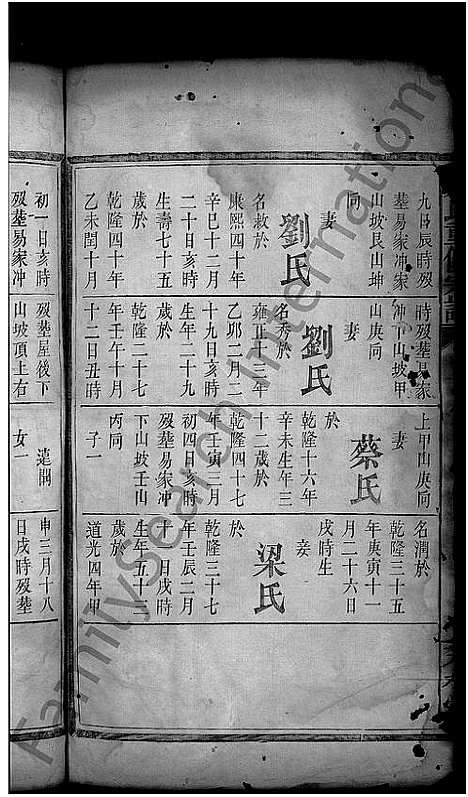 九日辰時歿
墓易家冲家
山坡艮山坤
向
妻
劉氏
名敖於
康熙四十年
辛巳十二月
二十日亥時
生壽七十五
歲於
乾隆四十年
乙未閏十月
初一日亥時
歿墓易家冲
時歿墓易家
冲下山坡甲
山庚向
妻
劉氏
名秀於
雍正十三年
乙卯二月二
十九日亥時
生年二十九
歲於
乾隆二十七
年壬午十月
十二日丑時
歿墓屋後下
山坡頂上右
上甲山庚向
妻
蔡氏
於
乾隆十六年
辛未生年三
十二歲於
乾隆四十七
年壬寅三月
初四日亥時
歿墓易家冲
下山坡壬山
丙向
子一
遠開
女一
名潤於
乾隆三十五
年庚寅十一
月二十六日
戌時生
妾
梁氏
於
乾隆三十七
年壬辰二月
十一月戌時
生年五十三
歲於
道光四年甲
申三月十八
日戌時歿墓
FamilySearch International